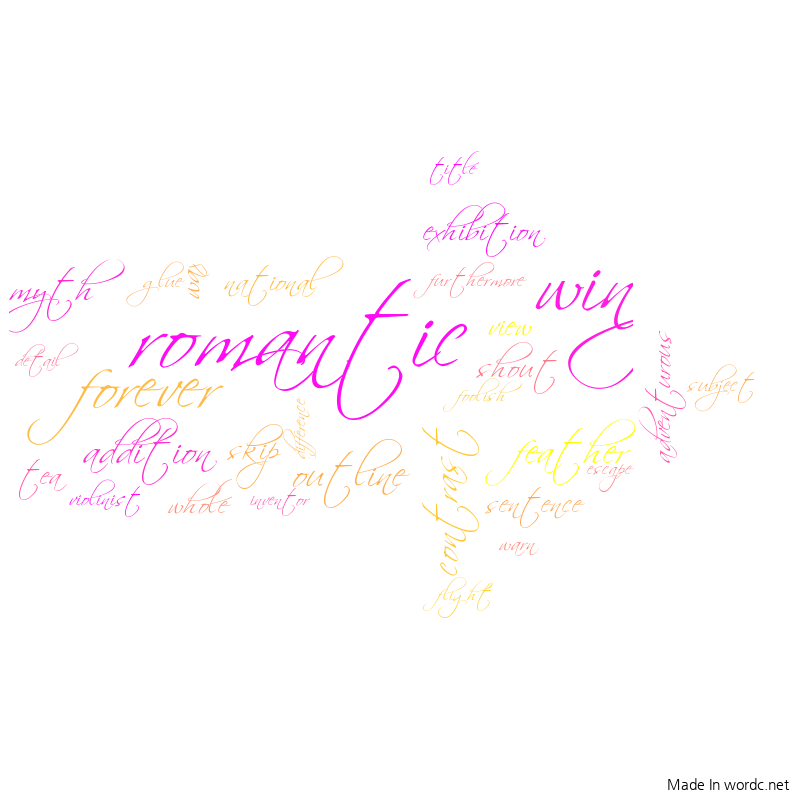 title
exhibition
myth
glue
way
national
furthermore
win
romantic
view
detail
forever
shout
foolish
adventurous
subject
addition
skip
difference
outline
contrast
feather
escape
tea
violinist
whole
inventor
sentence
warn
flight
Made In wordc.net